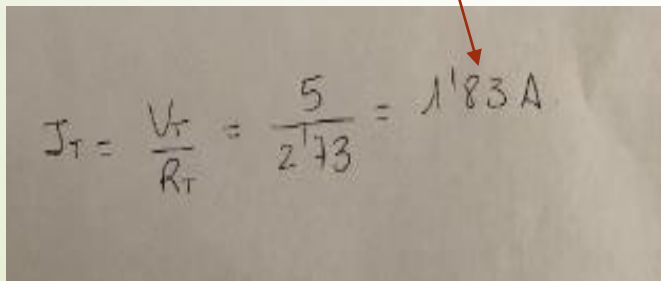 I_T = V_T / R_T = 5 / 2'73 = 1'83 A